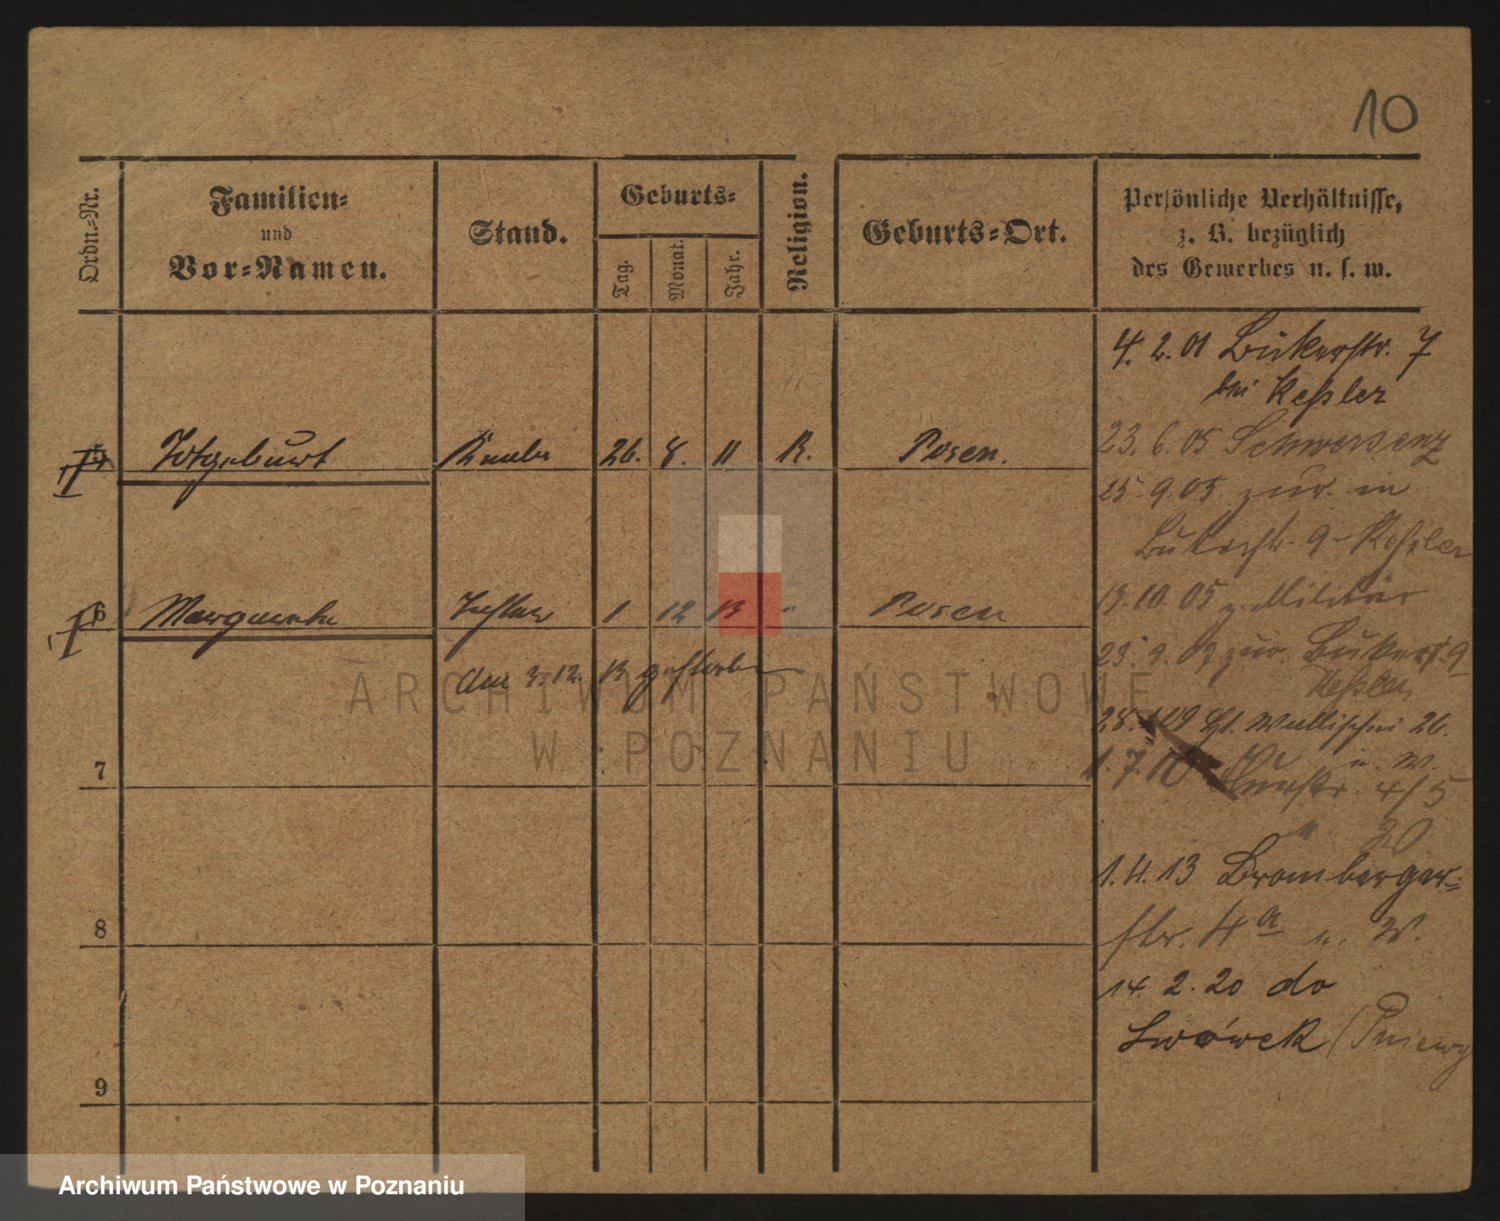 10
Ordn.-Nr.
Familien-
und
Vor-Namen.
Stand.
Geburts-
Tag.
Monat.
Jahr.
Religion.
Geburts-Ort.
Persönliche Verhältnisse,
z. B. bezüglich
des Gewerbes u. s. w.
4. 2. 01 Bukerstr. 7
bei Keßler
5 Totgeburt Knabe 26. 8. 11 K. Posen.
23. 6. 05 Schwersenz
25. 9. 05 zur. in
Bukerstr. 9 - Keßler
6 Margarethe Tochter 1 12 13 " Posen
10. 05 z. Militär
am 3. 12. 13 gestorben
23. 9. 07 zur. Bukerst. 9
Keßler
28. 09 Wallischei 26.
7
1. 7. 10 u. W.
4/5
" 20
1. 4. 13 Bromberger-
8
str. 4a u. W.
14. 2. 20 do
Lwówek (Pniewy
9
ARCHIWUM PAŃSTWOWE
W POZNANIU
Archiwum Państwowe w Poznaniu